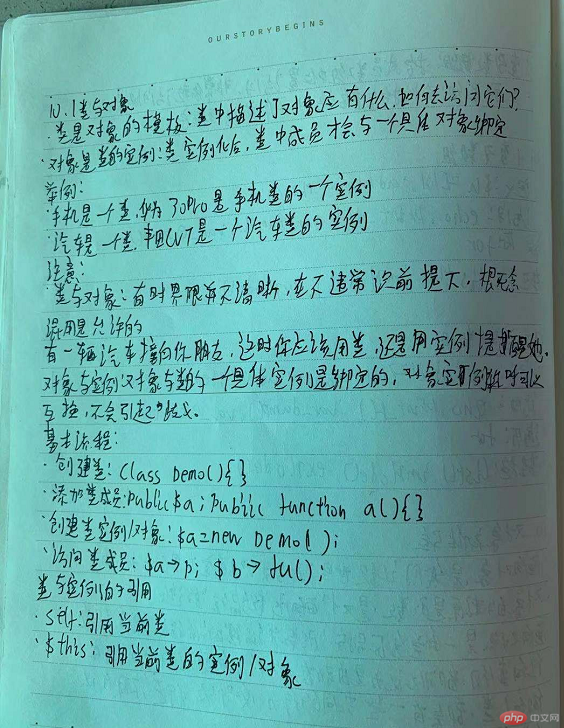 OURSTORYBEGINS
10.1类与对象
类是对象的模板:类中描述了对象应有什么,如何去访问它们?
·对象是类的实例:类实例化后,类中成员才会与一个具体对象绑定
举例:
·手机是一个类,华为30Pro是手机类的一个实例
·汽车是一个类,丰田CVT是一个汽车类的实例
注意:
·类与对象:有时界限并不清晰,在不违常识前提下,概念
混用是允许的
有一辆汽车撞向你朋友,这时你应该用类,还是用实例提醒她.
对象与实例:对象与类的一个具体实例是绑定的,对象实例 时可以
互换,不会引起歧义.
基本流程:
·创建类:Class Demo(){}
·添加类成员:Public $a;Public function a(){}
·创建类实例/对象:$a=new Demo();
·访问类成员:$a→p; $b→fu();
类与实例的引用
·self:引用当前类
·$this:引用当前类的实例/对象
php 中文网